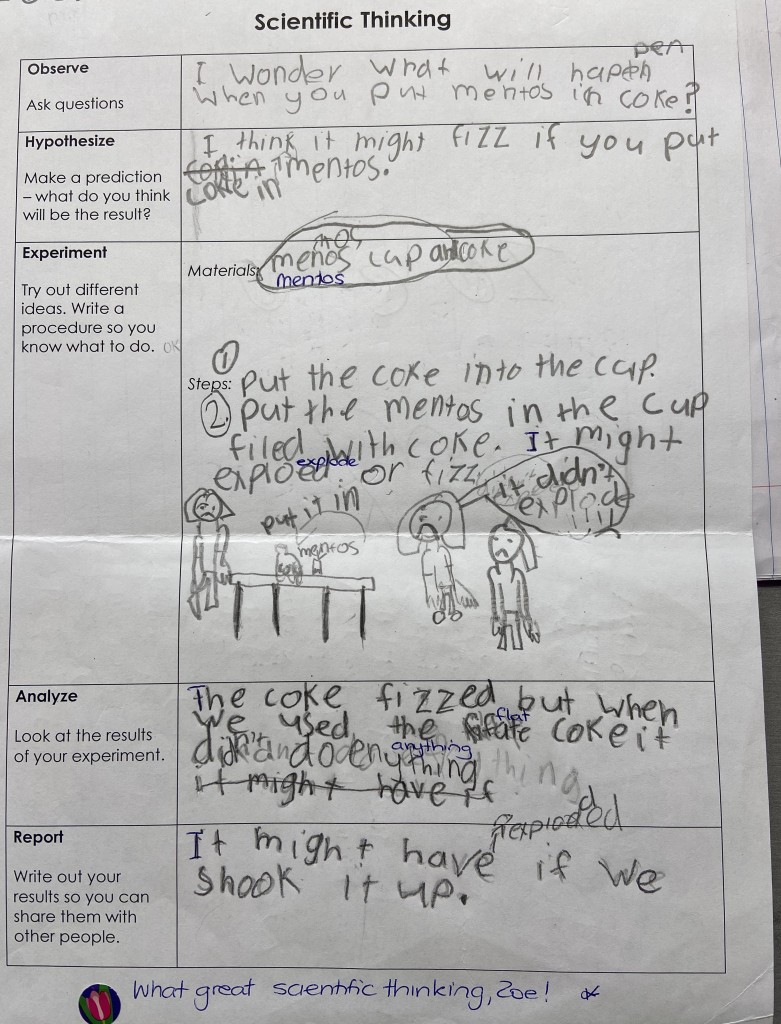 Scientific Thinking
Observe
Ask questions
pen
I wonder what will happen
when you put mentos in coke?
Hypothesize
Make a prediction
– what do you think
will be the result?
I think it might fizz if you put
coke in mentos.
Experiment
Try out different
ideas. Write a
procedure so you
know what to do. OK
Materials:
mos
menos cup and coke
mentos
①
Steps: put the coke into the cup.
② put the mentos in the cup
filed with coke. It might
explode
exploed or fizz
it didn't
explode
!!!!
put it in
mentos
Analyze
Look at the results
of your experiment.
The coke fizzed but when
flat
we used the coke it
didn't do anything
enything
thing
it might have if
Report
Write out your
results so you can
share them with
other people.
exploded
It might have if we
shook it up.
What great scientific thinking, Zoe!